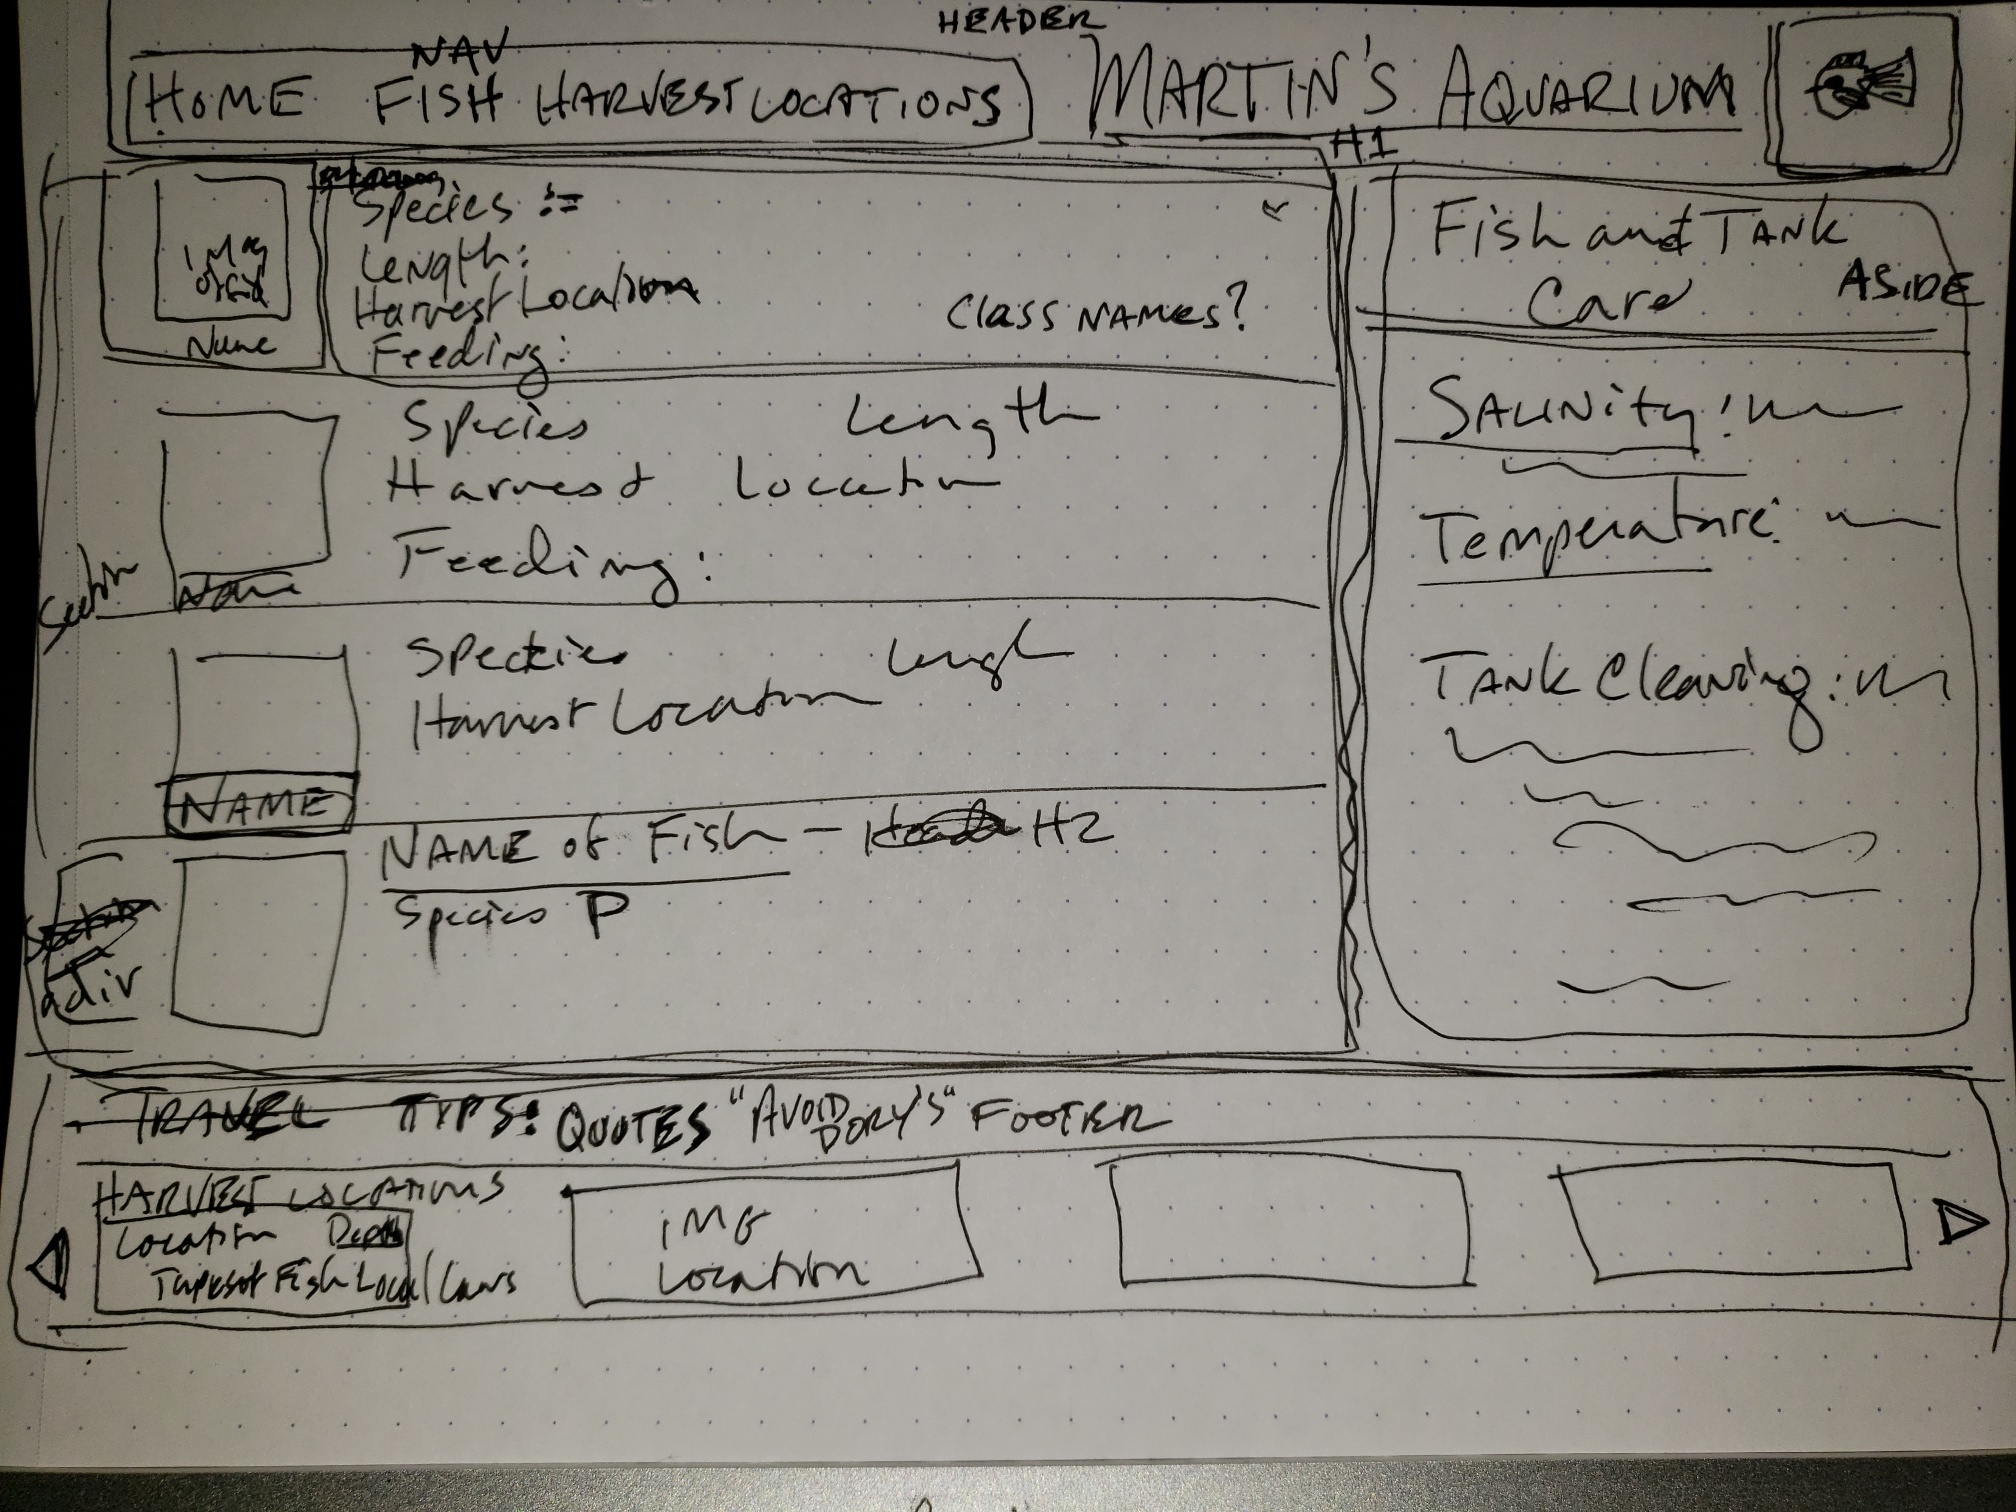 HEADER
NAV
HOME FISH HARVEST LOCATIONS
MARTIN'S AQUARIUM
H1
Name
Species :=
Length:
Harvest Location
Feeding:
Class NAMES?
Species Length
Harvest Location
Feeding:
Name
Section
Species Lengh
Harvest Location
NAME
NAME of Fish - H2
Species P
adiv
Fish and TANK
Care
ASIDE
SALINity:
Temperature:
TANK Cleaning:
TRAVEL TYPS: QUOTES "AVOID DORY'S" FOOTER
HARVEST LOCATIONS
Location Depth
Types of Fish Local Laws
IMG
Location